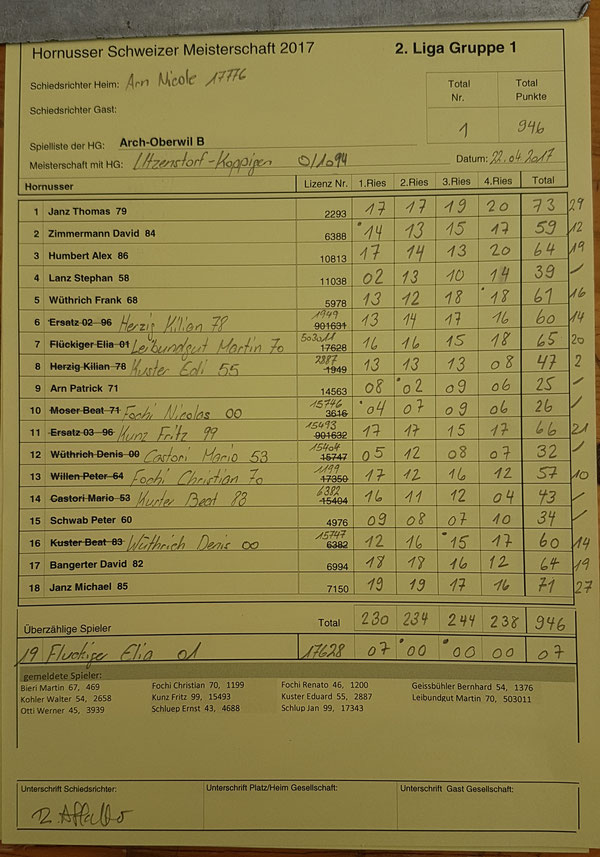 Hornusser Schweizer Meisterschaft 2017 2. Liga Gruppe 1
Schiedsrichter Heim: Arn Nicole 17776 Total Nr. Total Punkte
Schiedsrichter Gast: 1 946
Spielliste der HG: Arch-Oberwil B
Meisterschaft mit HG: Utzenstorf-Koppigen 0/1094 Datum: 22.04.2017
Hornusser Lizenz Nr. 1.Ries 2.Ries 3.Ries 4.Ries Total
1 Janz Thomas 79 2293 17 17 19 20 73 29
2 Zimmermann David 84 6388 14 13 15 17 59 12
3 Humbert Alex 86 10813 17 14 13 20 64 19
4 Lanz Stephan 58 11038 02 13 10 14 39 -
5 Wüthrich Frank 68 5978 13 12 18 18 61 16
6 Ersatz 02 96 Herzig Kilian 78 1949 901631 13 14 17 16 60 14
7 Flückiger Elia 01 Leibundgut Martin 70 503011 17628 16 16 15 18 65 20
8 Herzig Kilian 78 Kuster Edi 55 2887 1949 13 13 13 08 47 2
9 Arn Patrick 71 14563 08 02 09 06 25 -
10 Moser Beat 71 Fochi Nicolas 00 15746 3616 04 07 09 06 26 -
11 Ersatz 03 96 Kunz Fritz 99 15493 901632 17 17 15 17 66 21
12 Wüthrich Denis 00 Castori Mario 53 15404 15747 05 12 08 07 32 -
13 Willen Peter 64 Fochi Christian 70 1199 17350 17 12 16 12 57 10
14 Castori Mario 53 Kurter Beat 83 6382 15404 16 11 12 04 43 -
15 Schwab Peter 60 4976 09 08 07 10 34 -
16 Kuster Beat 83 Wüthrich Denis 00 15747 6382 12 16 15 17 60 14
17 Bangerter David 82 6994 18 18 16 12 64 19
18 Janz Michael 85 7150 19 19 17 16 71 27
Überzählige Spieler Total 230 234 244 238 946
19 Fluckiger Elia 01 17628 07 00 00 00 07
gemeldete Spieler:
Bieri Martin 67, 469 Fochi Christian 70, 1199 Fochi Renato 46, 1200 Geissbühler Bernhard 54, 1376
Kohler Walter 54, 2658 Kunz Fritz 99, 15493 Kuster Eduard 55, 2887 Leibundgut Martin 70, 503011
Otti Werner 45, 3939 Schluep Ernst 43, 4688 Schlup Jan 99, 17343
Unterschrift Schiedsrichter: Unterschrift Platz/Heim Gesellschaft: Unterschrift Gast Gesellschaft: